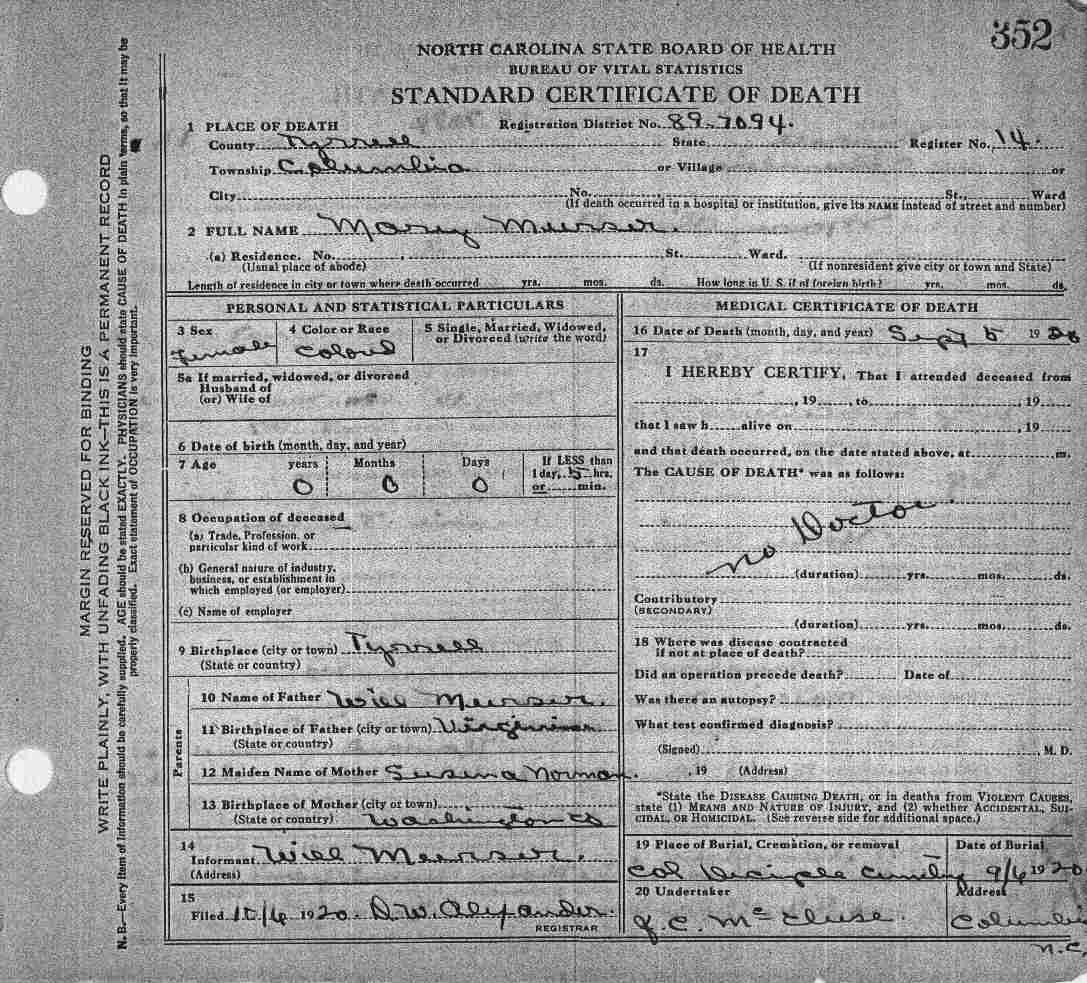 352
NORTH CAROLINA STATE BOARD OF HEALTH
BUREAU OF VITAL STATISTICS
STANDARD CERTIFICATE OF DEATH
1 PLACE OF DEATH Registration District No. 89-7094.
County Tyrrell State Register No. 14.
Township Columbia or Village or
City No. St., Ward
(If death occurred in a hospital or institution, give its NAME instead of street and number)
2 FULL NAME Mary
(a) Residence. No. St. Ward.
(Usual place of abode) (If nonresident give city or town and State)
Length of residence in city or town where death occurred yrs. mos. ds. How long in U. S. if of foreign birth? yrs. mos. ds.
PERSONAL AND STATISTICAL PARTICULARS
3 Sex
Female
4 Color or Race
Colord
5 Single, Married, Widowed,
or Divorced (write the word)
5a If married, widowed, or divorced
Husband of
(or) Wife of
6 Date of birth (month, day, and year)
7 Age years Months Days If LESS than
0 0 0 1 day, 5 hrs.
or min.
8 Occupation of deceased
(a) Trade, Profession, or
particular kind of work
(b) General nature of industry,
business, or establishment in
which employed (or employer)
(c) Name of employer
9 Birthplace (city or town) Tyrrell
(State or country)
Parents
10 Name of Father Will
11 Birthplace of Father (city or town)
(State or country)
12 Maiden Name of Mother Norman.
13 Birthplace of Mother (city or town)
(State or country) Washington Co
14
Informant Will
(Address)
15
Filed 1920. D. W. Alexander.
REGISTRAR
MEDICAL CERTIFICATE OF DEATH
16 Date of Death (month, day, and year) Sept 5 1920
17
I HEREBY CERTIFY, That I attended deceased from
, 19 , to , 19
that I saw h alive on , 19
and that death occurred, on the date stated above, at m.
The CAUSE OF DEATH* was as follows:
no Doctor.
(duration) yrs. mos. ds.
Contributory
(SECONDARY)
(duration) yrs. mos. ds.
18 Where was disease contracted
if not at place of death?
Did an operation precede death? Date of
Was there an autopsy?
What test confirmed diagnosis?
(Signed) , M. D.
, 19 (Address)
*State the DISEASE CAUSING DEATH, or in deaths from VIOLENT CAUSES,
state (1) MEANS AND NATURE OF INJURY, and (2) whether ACCIDENTAL, SUI-
CIDAL, OR HOMICIDAL. (See reverse side for additional space.)
19 Place of Burial, Cremation, or removal Date of Burial
Col 9/6 1920
20 Undertaker Address
J. C. Columbia
N.C.
MARGIN RESERVED FOR BINDING
WRITE PLAINLY, WITH UNFADING BLACK INK—THIS IS A PERMANENT RECORD
N. B.—Every item of information should be carefully supplied. AGE should be stated EXACTLY. PHYSICIANS should state CAUSE OF DEATH in plain terms, so that it may be
properly classified. Exact statement of OCCUPATION is very important.